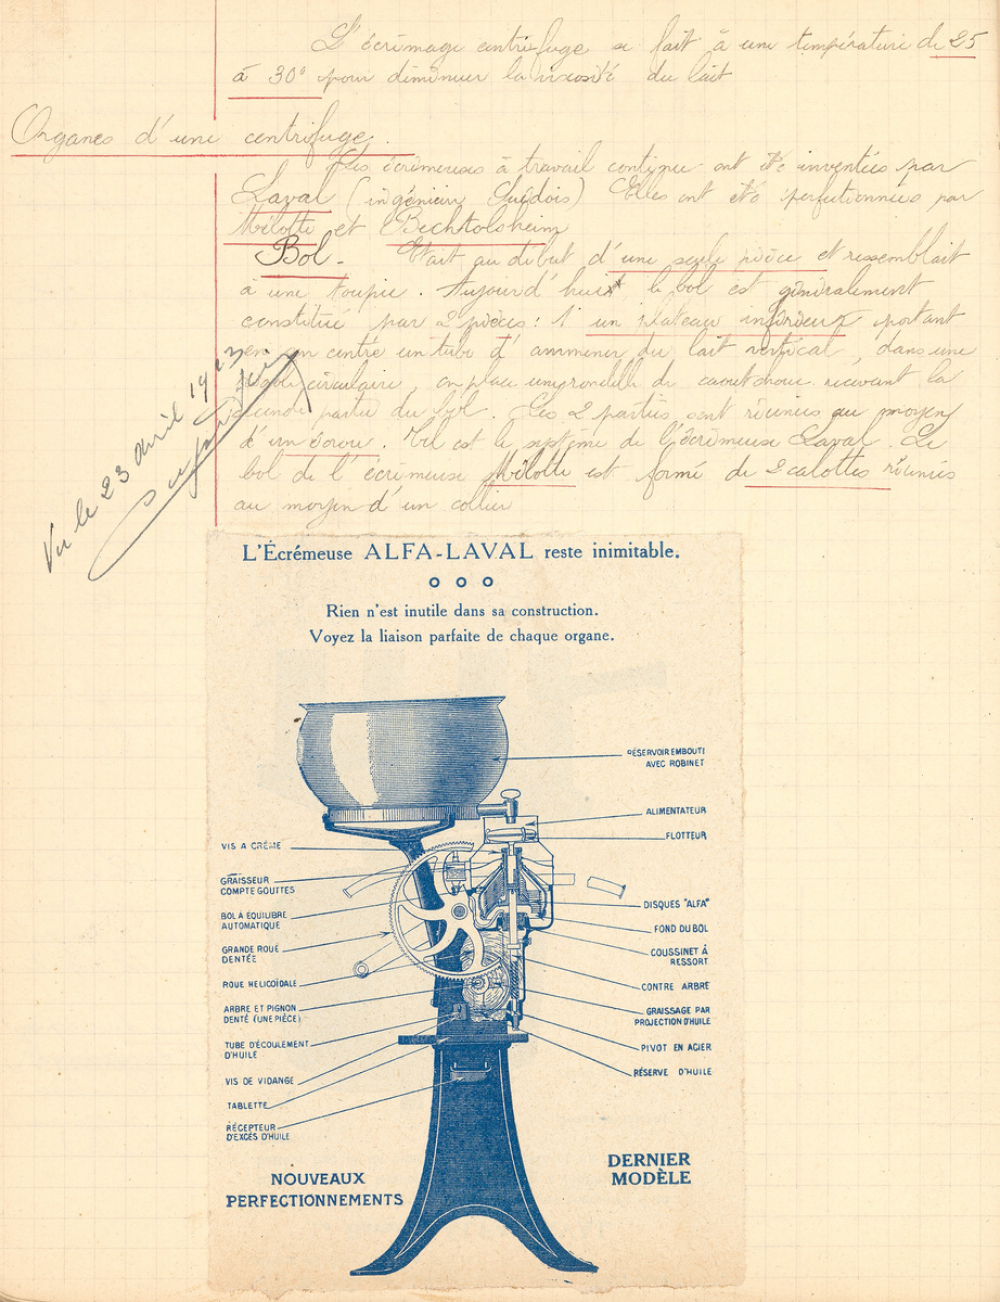 L'écrémage centrifuge se fait à une température de 25
à 30° pour diminuer la viscosité du lait
Organes d'une centrifuge.
Les écrémeuses à travail continue ont été inventées par
Laval (ingénieur Suédois) Elles ont été perfectionnées par
Mélotte et Bechtolsheim
Bol - Etait au début d'une seule pièce et ressemblait
à une toupie. Aujourd'hui le bol est généralement
constitué par 2 pièces : 1° un plateau inférieur portant
en son centre un tube d'ammener du lait vertical, dans une
circulaire, on place une rondelle de caoutchouc recevant la
seconde partie du bol. Les 2 parties sont réunies au moyen
d'un écrou. Tel est le système de l'écrémeuse Laval. Le
bol de l'écrémeuse Mélotte est formé de 2 calottes réunies
au moyen d'un collier
Vu le 23 avril
L'Écrémeuse ALFA-LAVAL reste inimitable.
Rien n'est inutile dans sa construction.
Voyez la liaison parfaite de chaque organe.
RÉSERVOIR EMBOUTI
AVEC ROBINET
ALIMENTATEUR
FLOTTEUR
DISQUES "ALFA"
FOND DU BOL
COUSSINET À
RESSORT
CONTRE ARBRE
GRAISSAGE PAR
PROJECTION D'HUILE
PIVOT EN ACIER
RÉSERVE D'HUILE
VIS A CRÈME
GRAISSEUR
COMPTE GOUTTES
BOL À EQUILIBRE
AUTOMATIQUE
GRANDE ROUE
DENTÉE
ROUE HELICOÏDALE
ARBRE ET PIGNON
DENTÉ (UNE PIÈCE)
TUBE D'ÉCOULEMENT
D'HUILE
VIS DE VIDANGE
TABLETTE
RÉCEPTEUR
D'EXCÈS D'HUILE
NOUVEAUX
PERFECTIONNEMENTS
DERNIER
MODÈLE